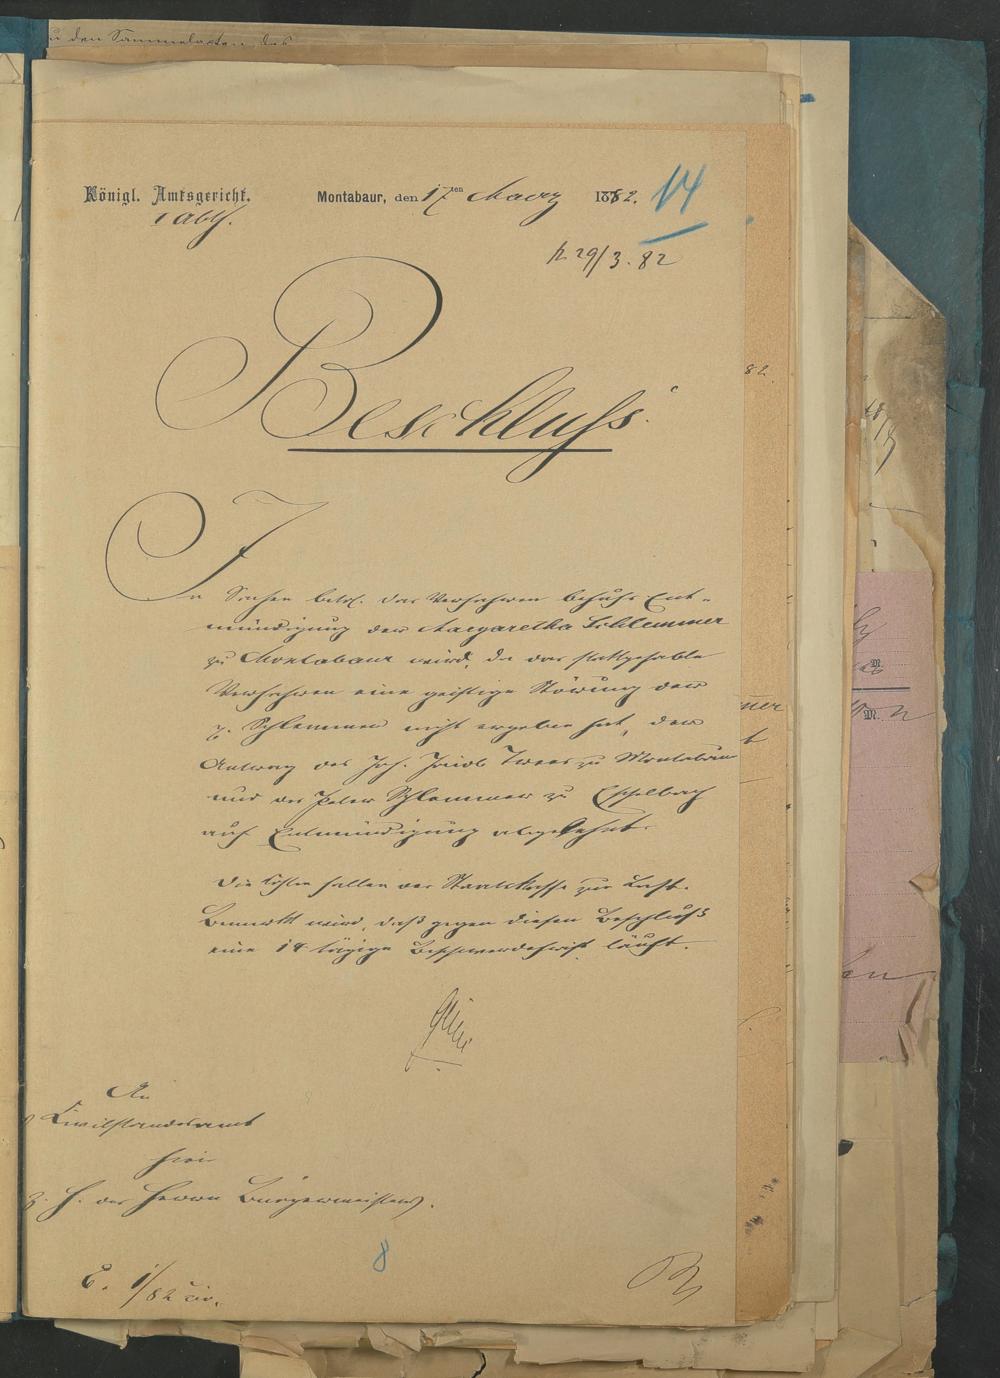 zu den Sammelacten des
Königl. Amtsgericht. Montabaur, den 17ten Maerz 1882. 14
1 Abth.
pr 29/3. 82
Beschluss.
In Sachen betr. das Verfahren behufs Ent-
mündigung der Margaretha Schlemmer
zu Montabaur wird, da das stattgehabte
Verfahren eine geistige Störung der
p. Schlemmer nicht ergeben hat, der
Antrag des Joh. Jacob zu Montabaur
und des Peter Schlemmer zu Eschelbach
auf Entmündigung abgelehnt.
Die Kosten fallen der Staatskasse zur Last.
Bemerkt wird, daß gegen diesen Beschluß
eine 14 tägige Beschwerdefrist läuft.
An
Civilstandsamt
hier
z. H. des Herrn Bürgermeisters.
8
E. 1/82 civ.
82.
mer
t
M.
M.
en